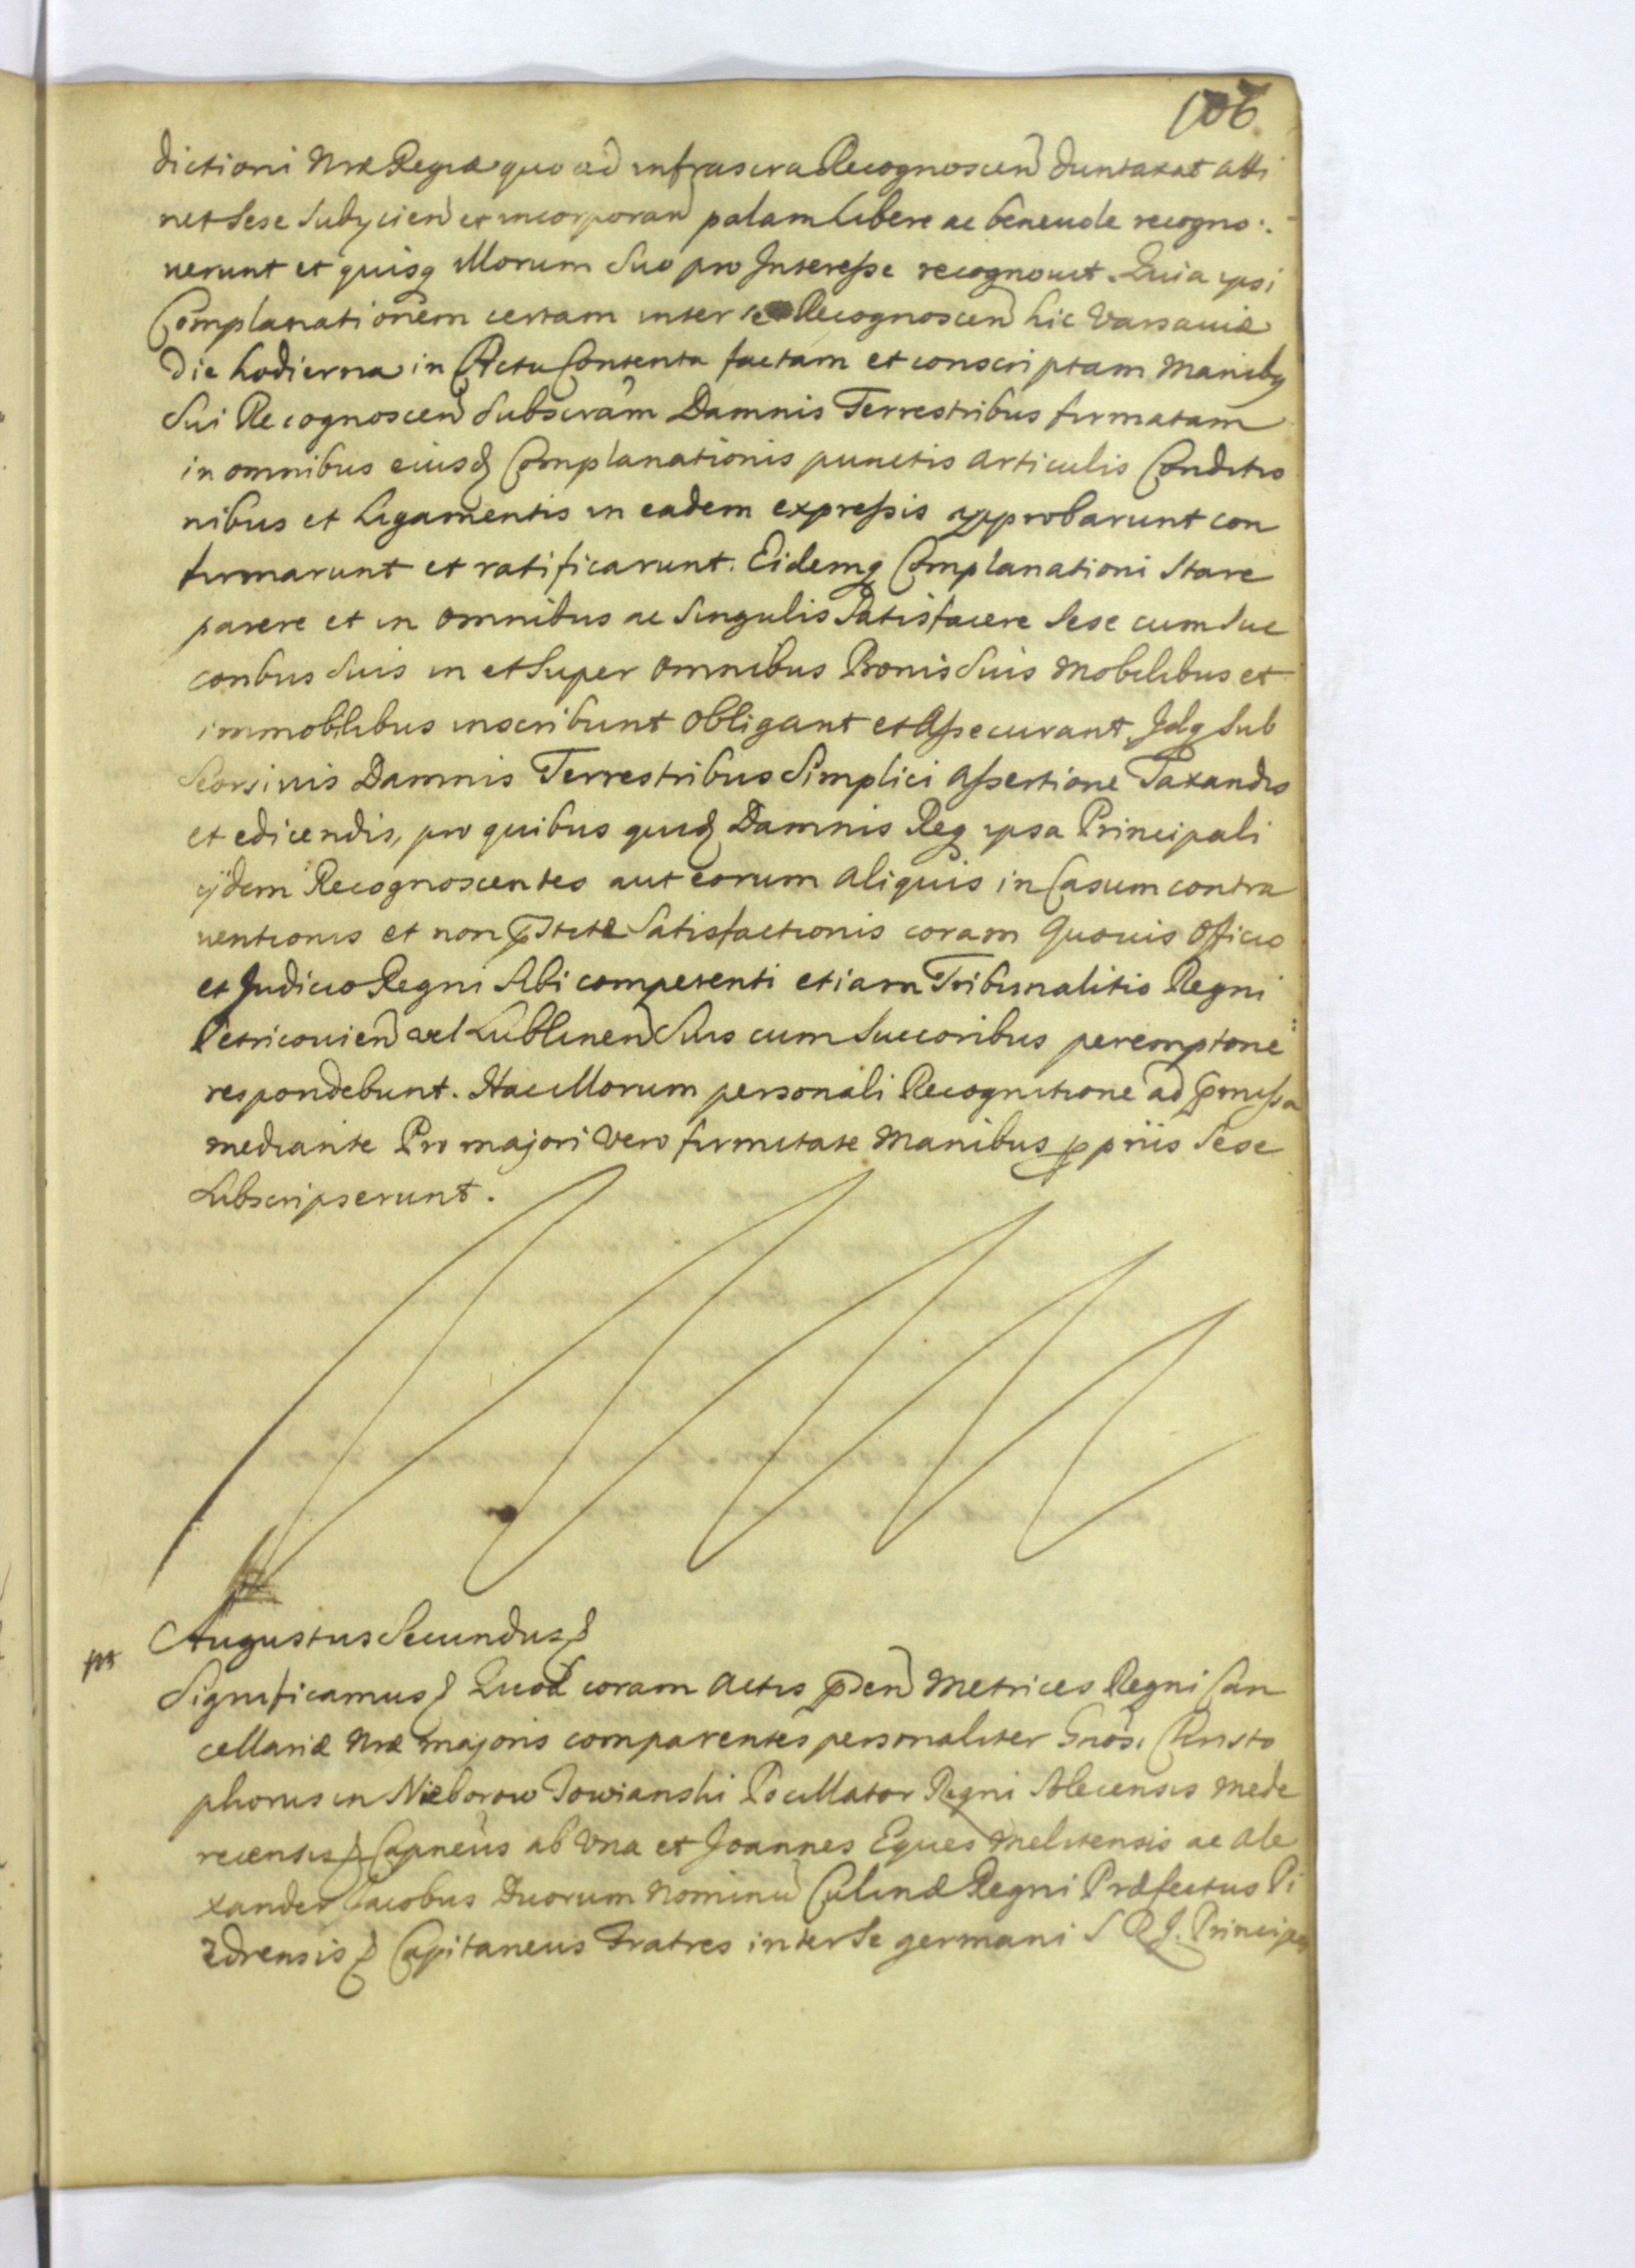 106
dictioni Nræ Regiæ quo ad infrascra Recognoscen duntaxat atti
net sese subycien et incorporan palam libere ac benevole recogno:
verunt et quisq illorum suo pro Interesse recognovit. Quia ipsi
Complanationem certam inter se Recognoscen hic Varsaviæ
die hodierna in Actu Contenta factam et conscriptam Manibq
Sui Recognoscen Subscram Damnis Terrestribus firmatam
in omnibus eiusd Complanationis punctis Articulis Conditio
nibus et Ligamentis in eadem expressis approbarunt con
firmarunt et ratificarunt. Eidemq Complanationi stare
parere et in omnibus ac singulis satisfacere sese cum suc
coribus suis in et super omnibus Bonis suis Mobilibus et
immobilibus inscribunt obligant et Assecurant, Idq sub
seorsivis Damnis Terrestribus Simplici Assertione Taxandis
et edicendis, pro quibus quid Damnis Req ipsa Principali
ijdem Recognoscentes aut eorum aliquis in Casum contra
ventionis et non pstitæ Satisfactionis coram quovis Officio
et Judicio Regni sibi competenti etiam Tribunalitio Regni
Petricovien vel Lublinen suis cum succoribus peremptorie
respondebunt. Hac illorum personali Recognitione ad pmissa
mediante Pro majori vero firmitate Manibus ppriis sese
subscripserunt.
Augustus Secundus
Significamus Quod coram Actis pden Metrices Regni Can
cellariæ Nræ majoris comparentes personaliter Gnosi Christo
phorus in Nieborow Towianski Pocillator Regni Solecensis Mede
recensis Capneus ab una et Joannes Eques Melitensis ac Ale
xander Jacobus Duorum Nominu Culinæ Regni Præfectus Pi
zdrensis Capitaneus Fratres inter se germani S R J. Principes